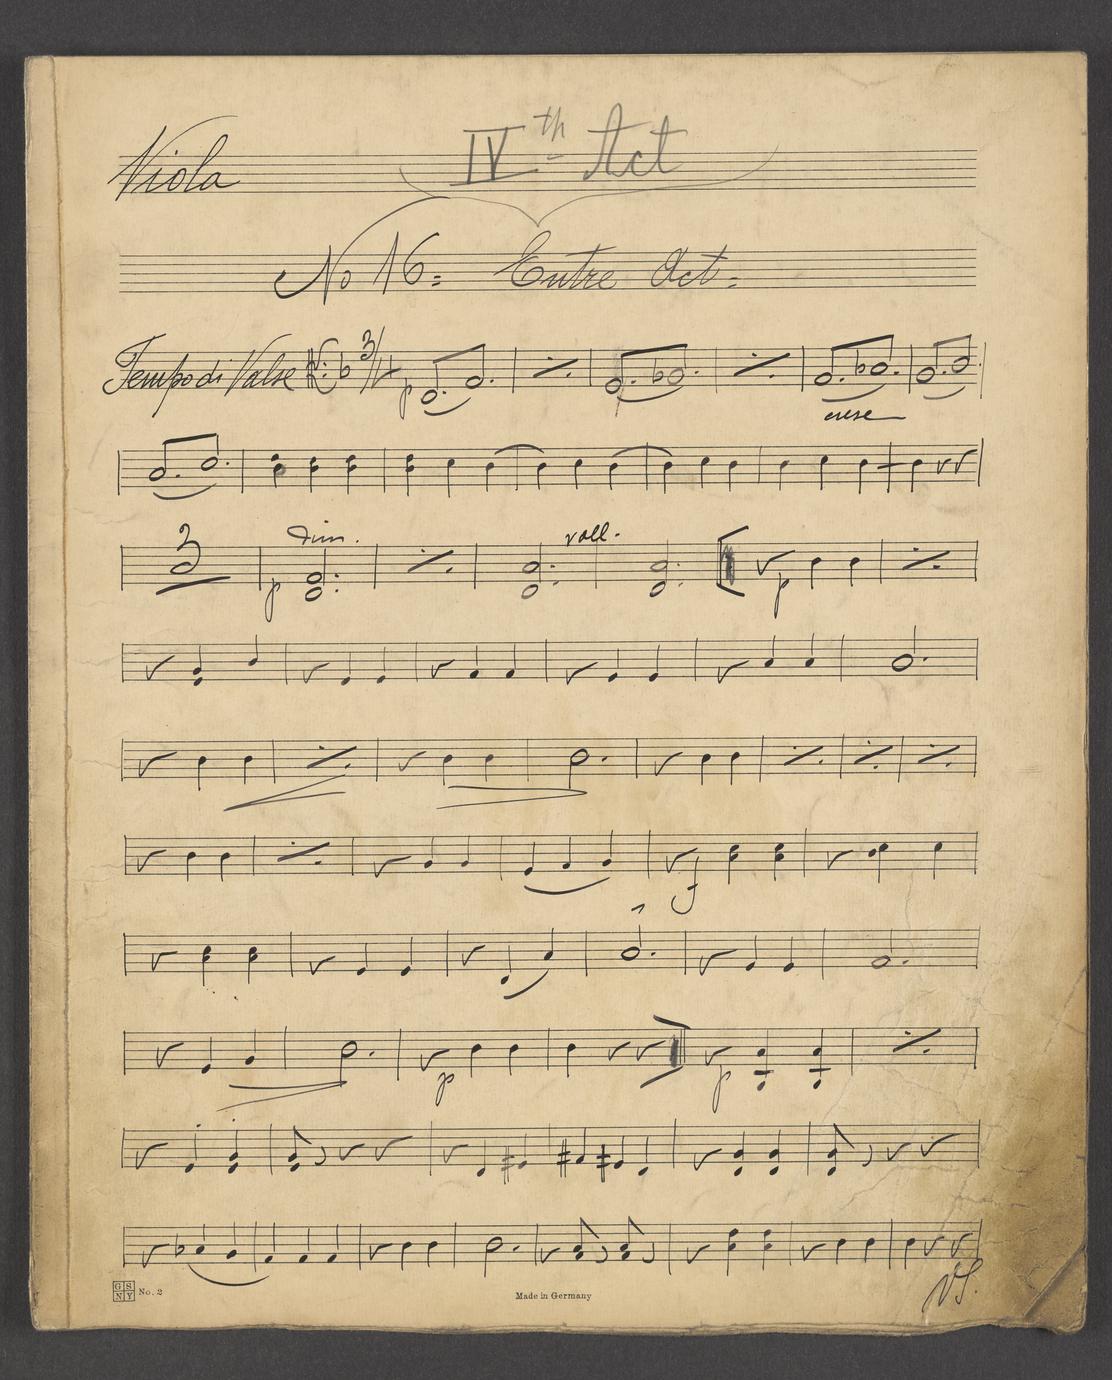 Viola
IVth Act
No 16= Entre Act=
Tempo di Valse 3/4
p
cresc
3
dim.
roll.
p
p
f
p
p
VS.
GS NY No. 2
Made in Germany